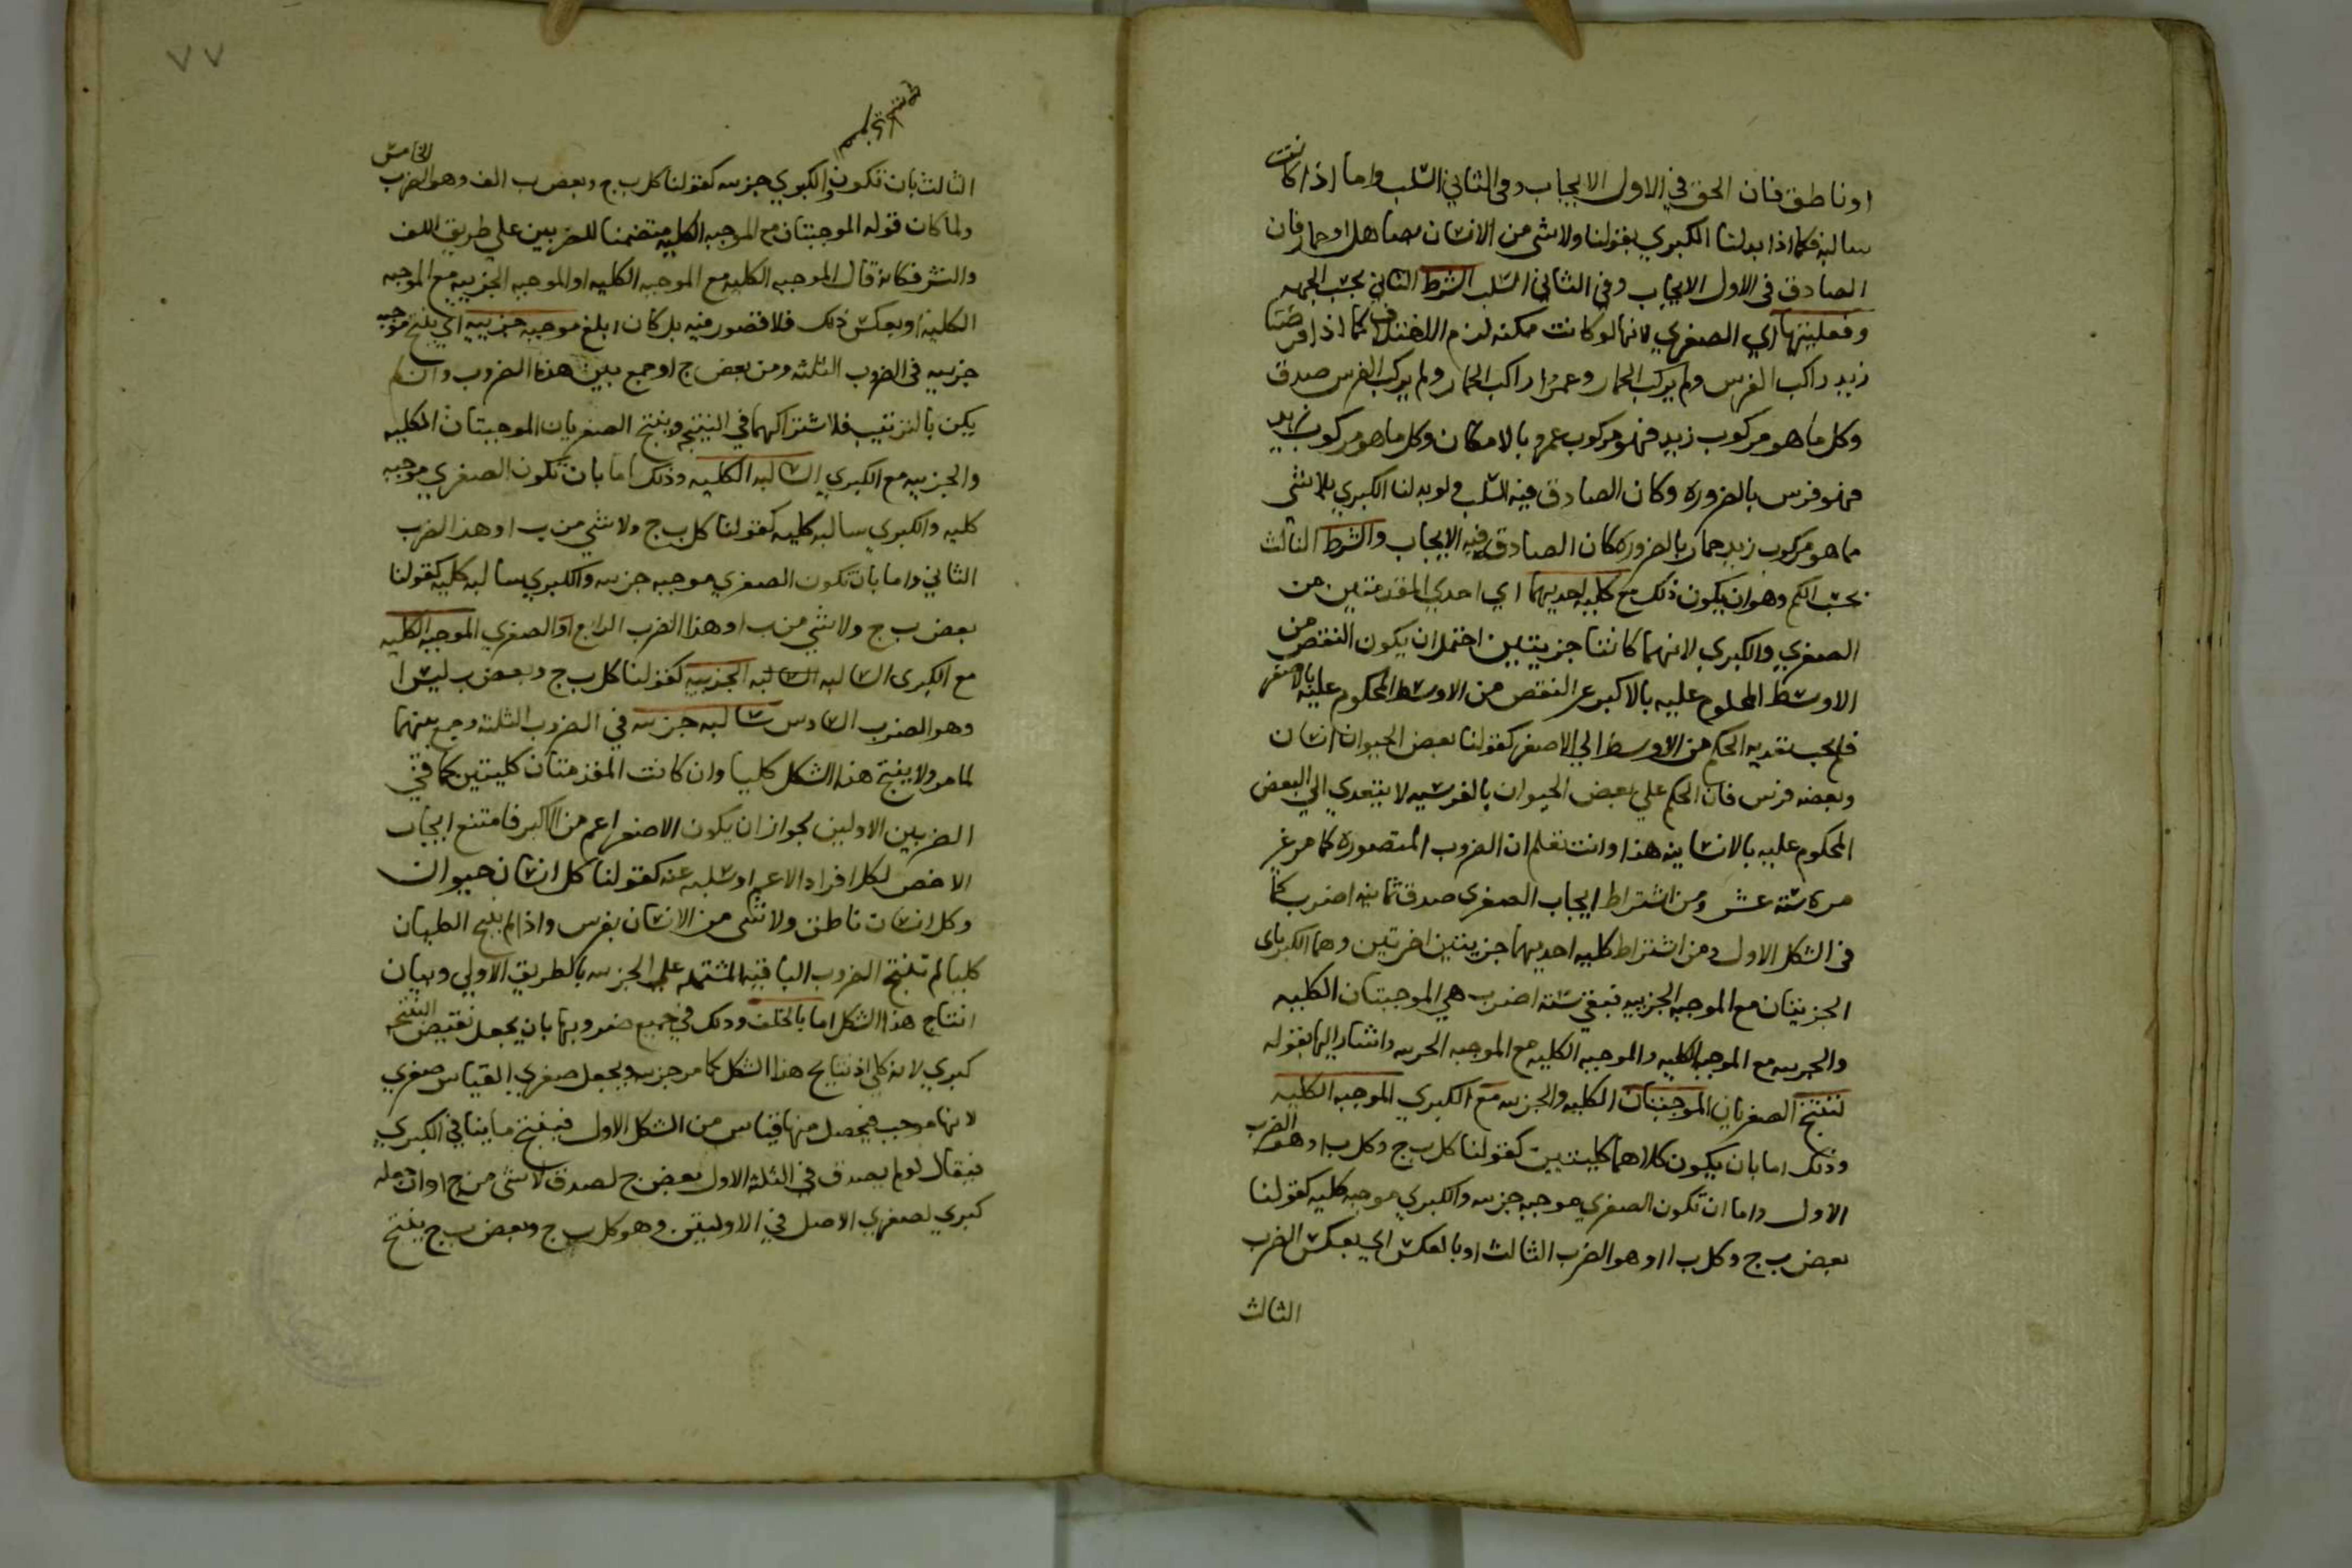 او ناطق فان الحق في الاول الايجاب وفي الثاني السلب واما اذا كانت
سالبة فكما اذا بدلنا الكبري بقولنا ولا شي من الانسان بصاهل او حمار فان
الصادق في الاول الايجاب وفي الثاني السلب الشرط الثاني بحسب الجهه
وفعليتها اي الصغري لانها لو كانت ممكنه لزم الاختلاف كما اذا فرضنا
زيد راكب الفرس ولم يركب الحمار وعمرا راكب الحمار ولم يركب الفرس صدق
وكل ما هو مركوب زيد فهو مركوب عمرو بالامكان وكل ما هو مركوب زيد
فهو فرس بالضروره وكان الصادق فيه السلب ولو بدلنا الكبري بلا شي
مما هو مركوب زيد حمار بالضروره كان الصادق فيه الايجاب والشرط الثالث
بحسب الكم وهو ان يكون ذلك مع كليه احديهما اي احدي المقدمتين من
الصغري والكبري لانهما كانتا جزييتين احتمل ان يكون البعض من
الاوسط المحكوم عليه بالاكبر غير البعض من الاوسط المحكوم عليه بالاصغر
فلم يجب تعديه الحكم من الاوسط الي الاصغر كقولنا بعض الحيوان انسان
وبعضه فرس فان الحكم علي بعض الحيوان بالفرسيه لا يتعدي الي البعض
المحكوم عليه بالانسانيه هذا وانت تعلم ان الضروب المتصوره كما مر غير
مره سته عشر ومن اشتراط ايجاب الصغري صدق ثمانيه اضرب كما
في الشكل الاول ومن اشتراط كليه احديهما جزييتين اخرتين وهما الكبرياى
الجزييتان مع الموجبه الجزييه فبقي سته اضرب هي الموجبتان الكليه
والجزييه مع الموجبه الكليه والموجبه الكليه مع الموجبه الجزييه واشار اليها بقوله
لتنتج الصغريان الموجبتان الكليه والجزييه مع الكبري الموجبه الكليه
وذلك اما بان يكون كلاهما كليتين كقولنا كل ب ج وكل ب ا وهو الضرب
الاول واما ان تكون الصغري موجبه جزييه والكبري موجبه كليه كقولنا
بعض ب ج وكل ب ا وهو الضرب الثالث او بالعكس اي بعكس الضرب
الثالث
٧٧
الثالث بان تكون والكبري جزييه كقولنا كل ب ج وبعض ب الف وهو الضرب الخامس
ولما كان قوله الموجبتان مع الموجبه الكليه متضمنا للضربين علي طريق اللف
والنشر فكانه قال الموجبه الكليه مع الموجبه الكليه او الموجبه الجزييه مع الموجبه
الكليه او بعكس ذلك فلا قصور فيه بل كان ابلغ موجبه جزييه اي ينتج موجبه
جزييه في الضروب الثلثه ومن بعض ج ا وجمع بين هذه الضروب وان لم
يكن بالترتيب فلاشتراكهما في النتيجه وينتج الصغريان الموجبتان الكليه
والجزييه مع الكبري السالبه الكليه وذلك اما بان تكون الصغري موجبه
كليه والكبري سالبه كليه كقولنا كل ب ج ولا شي من ب ا وهذا الضرب
الثاني واما بان تكون الصغري موجبه جزييه والكبري سالبه كليه كقولنا
بعض ب ج ولا شي من ب ا وهذا الضرب الرابع او الصغري الموجبه الكليه
مع الكبري السالبه السالبه الجزييه كقولنا كل ب ج وبعض ب ليس ا
وهو الضرب السادس سالبه جزييه في الضروب الثلثه وجمع بينهما
لما مر ولا ينتج هذا الشكل كليا وان كانت المقدمتان كليتين كما في
الضربين الاولين لجواز ان يكون الاصغر اعم من الاكبر فامتنع ايجاب
الاخص لكل افراد الاعم او سلبه عنه كقولنا كل انسان حيوان
وكل انسان ناطق ولا شي من الانسان بفرس واذا لم ينتج الطبان
كليا لم تنتج الضروب الباقيه المشتمله علي الجزييه بالطريق الاولي وبيان
انتاج هذا الشكل اما بالخلف وذلك في جميع ضروبها بان يجعل نقيض النتيجه
كبري لانه كلي اذ نتايج هذا الشكل كما مر جزييه ويجعل صغري القياس صغري
لانها موجب فيحصل منها قياس من الشكل الاول فينتج ما ينافي الكبري
فيقال لو لم يصدق في الثلثه الاول بعض ج لصدق لا شي من ج ا وان جعله
كبري لصغري الاصل في الاوليتين وهو كل ب ج وبعض ب ج ينتج